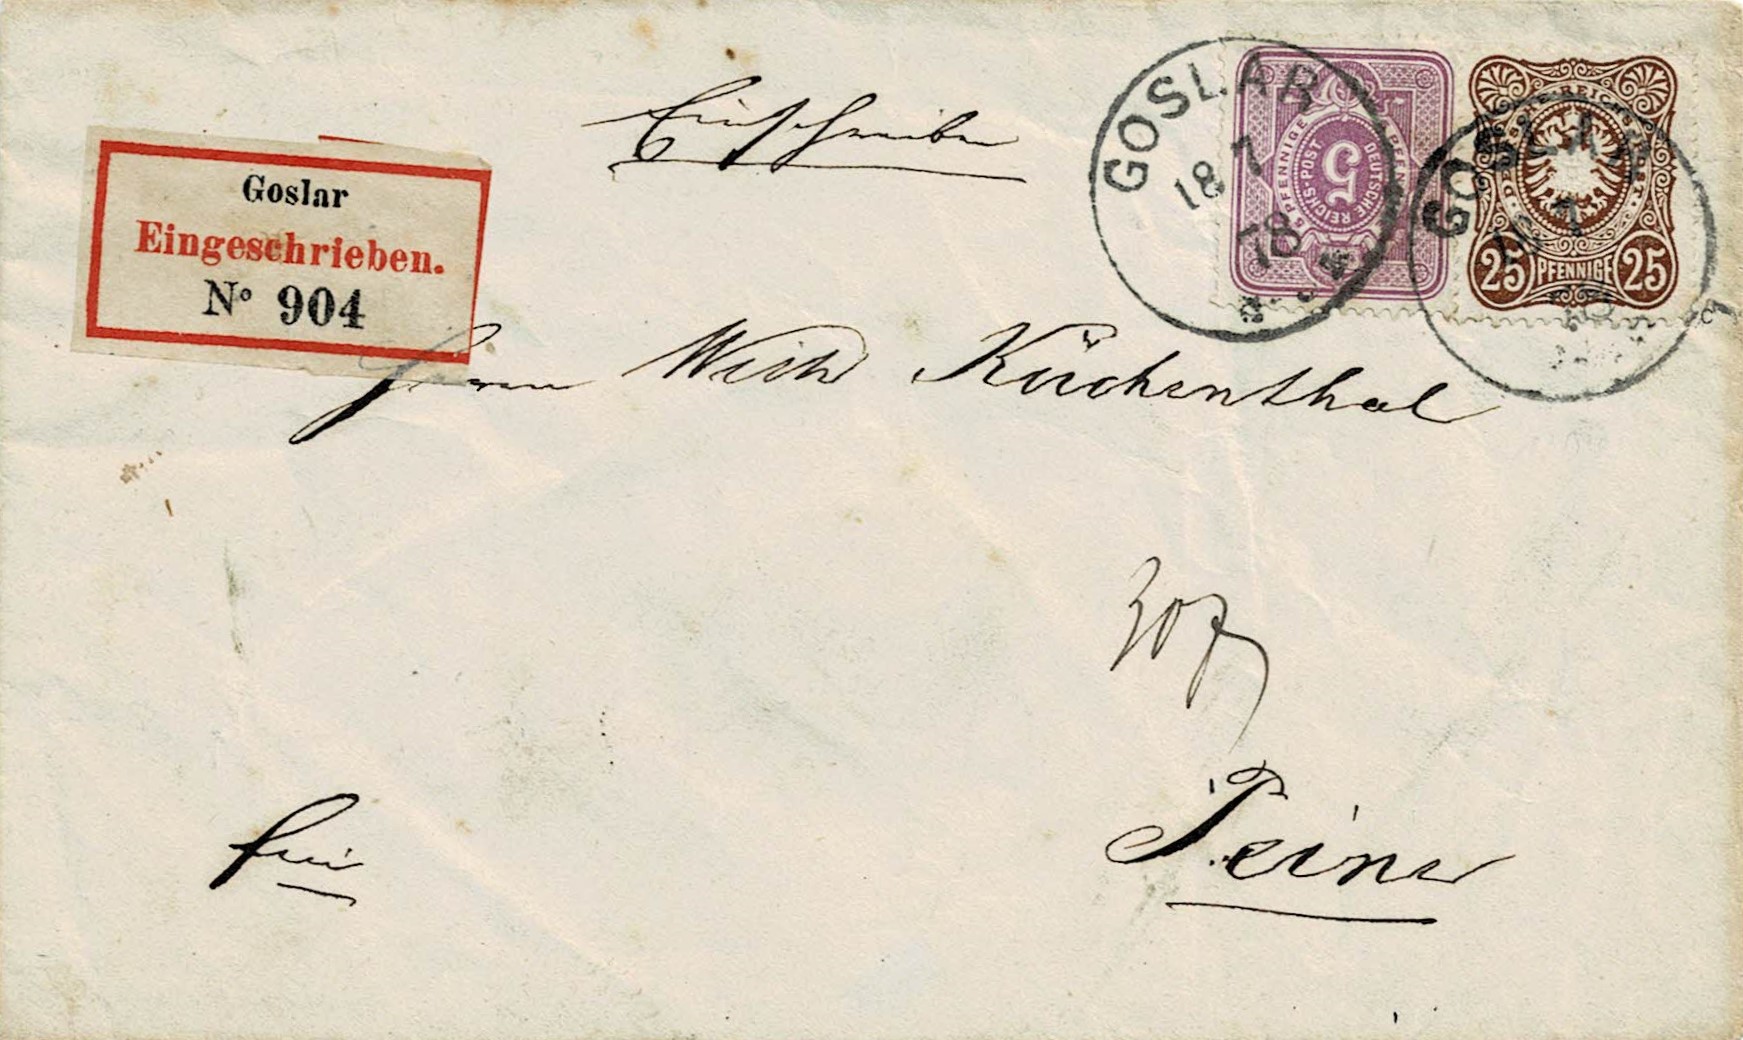 Einschreiben
Goslar
Eingeschrieben.
No 904
GOSLAR
18 7
78
5 PFENNIGE
DEUTSCHE REICHS-POST
5
GOSLAR
7
DEUTSCHE REICHS-POST
25 PFENNIGE 25
Herrn Wilh Küchenthal
30
Peine
frei